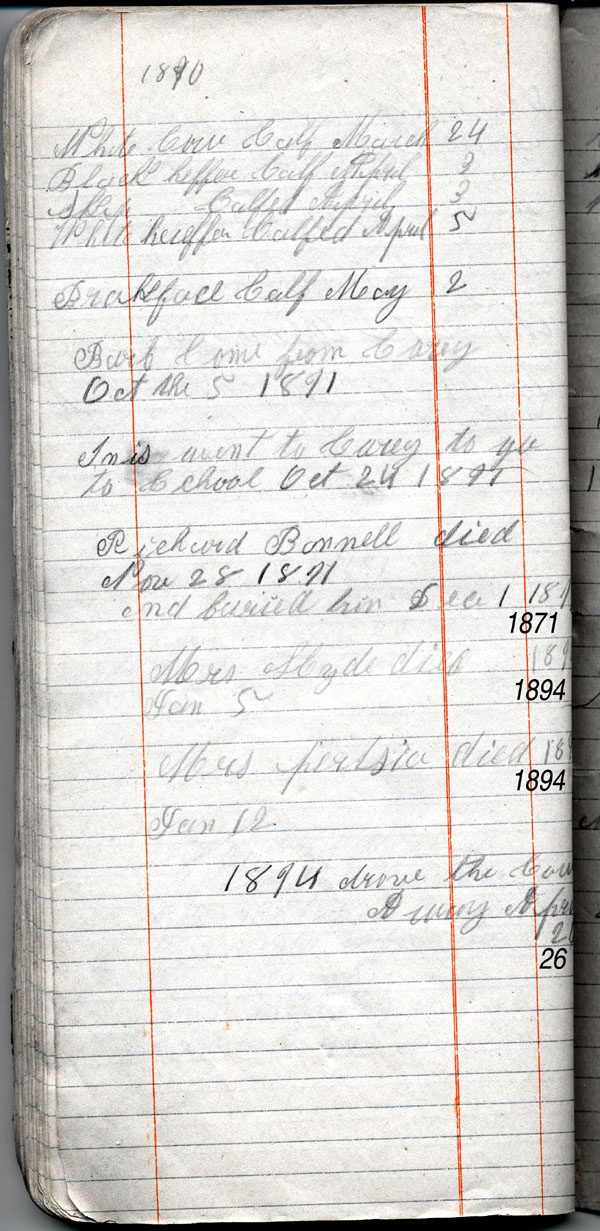 1890
White Cow Calf March 24
Black heffer Calf April 3
Calfed April 3
White heiffer Calfed April 5
Brakfacl Calf May 2
Come from Carey
Oct the 5 1891
Inis went to Carey to go
to School Oct 24 1891
Richard Bonnell died
Nov 28 1891
and buried him Dec 1 189
1871
Mrs Hyde died 189
1894
Jan 5
Mrs died 18
1894
Jan 12
1894 drove the Cow
Away Apri
2
26